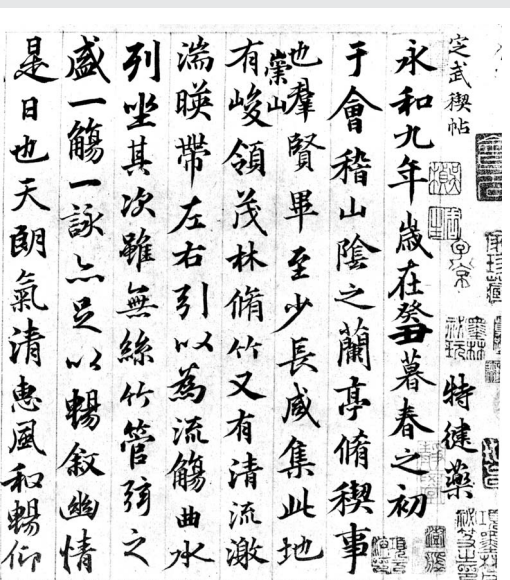 定武禊帖
子京
特健藥
永和九年歲在癸丑暮春之初
于會稽山陰之蘭亭脩稧事
也羣賢畢至少長咸集此地
有崇山峻領茂林脩竹又有清流激
湍暎帶左右引以為流觴曲水
列坐其次雖無絲竹管弦之
盛一觴一詠亦足以暢敘幽情
是日也天朗氣清惠風和暢仰